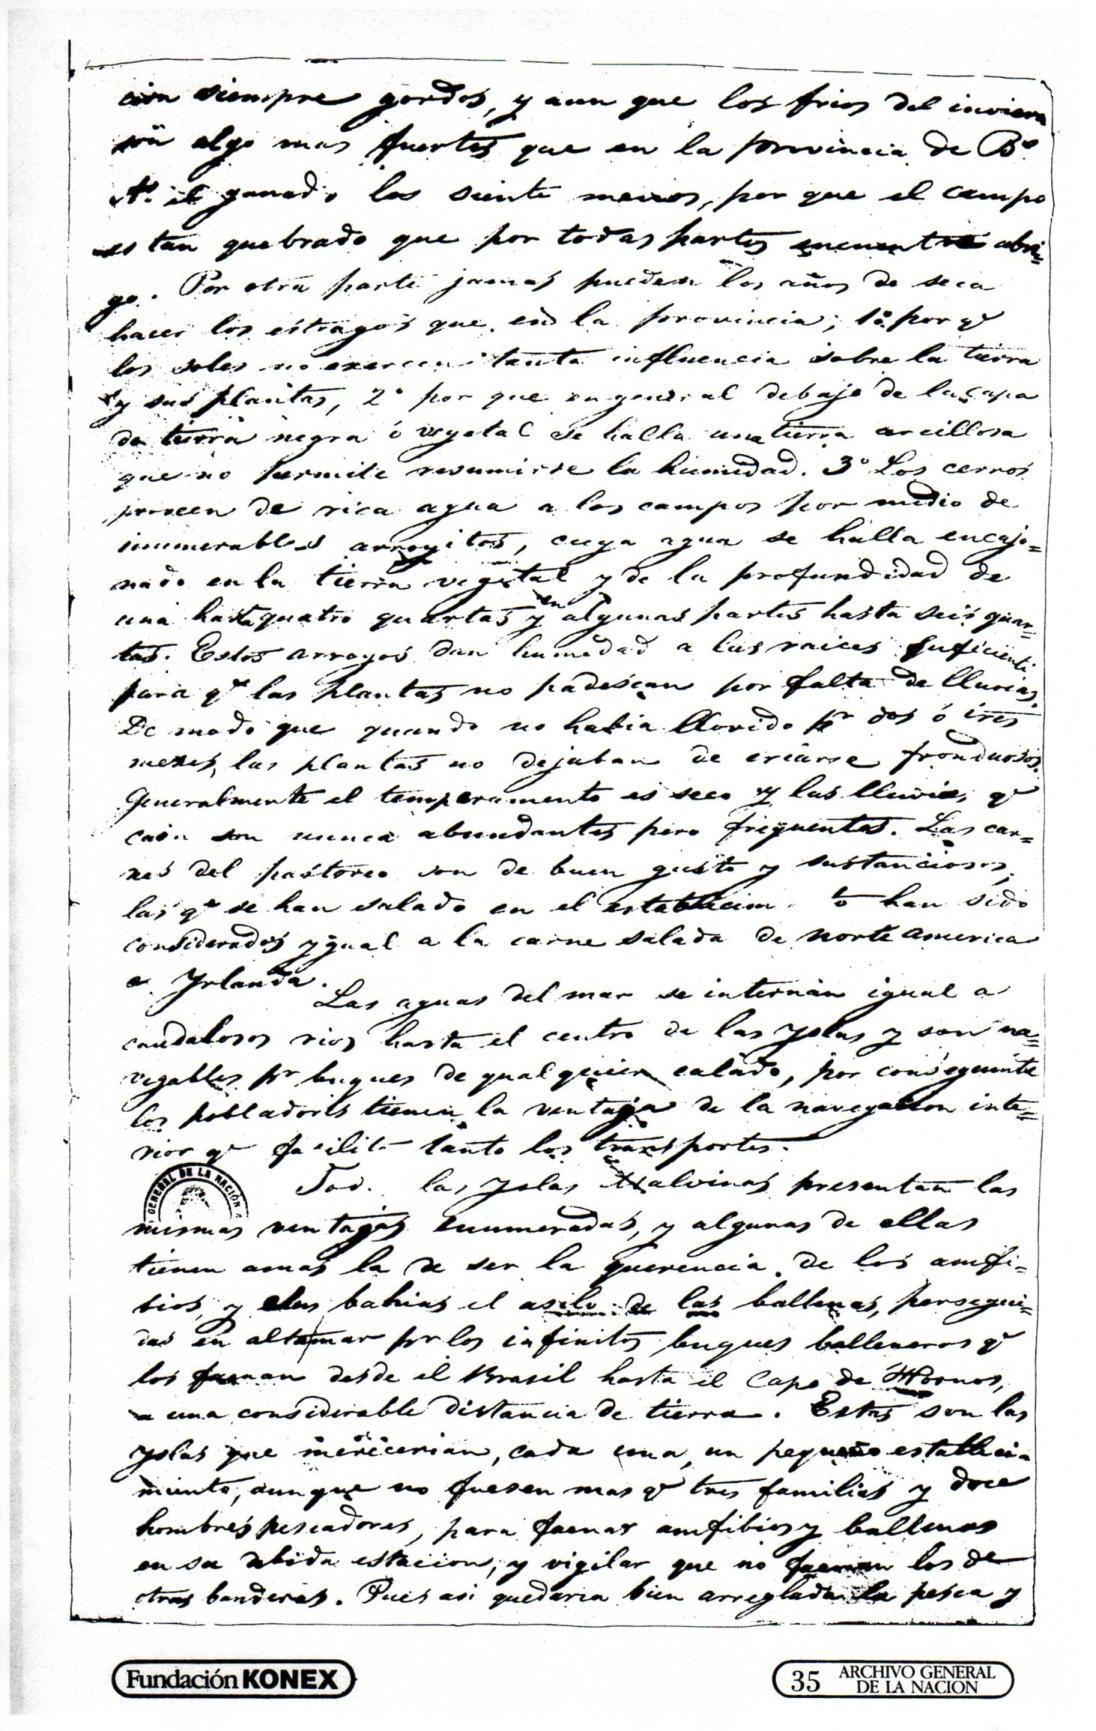 cion siempre gordos, y aun que los frios del invierno
son algo mas fuertes que en la provincia de Bs
As. el ganado los siente menos, por que el campo
es tan quebrado que por todas partes encuentra abri=
go. Por otra parte jamas pueden los años de seca
hacer los estragos que en la provincia; 1º por qe
los soles no exercen tanta influencia sobre la tierra
y sus plantas, 2º por que en general debajo de la capa
de tierra negra ó vegetal se halla una tierra arcillosa
que no permite resumirse la humedad. 3º Los cerros
proveen de rica agua a los campos por medio de
inumerables arroyitos, cuya agua se halla encajo=
nado en la tierra vegetal y de la profundidad de
una hasta quatro quartas y en algunas partes hasta seis quar=
tas. Estos arroyos dan humedad a las raices suficiente
para qe las plantas no padescan por falta de lluvias.
De modo que quando no habia llovido pr dos ó tres
meses, las plantas no dejaban de criarse frondosos.
Generalmente el temperamento es seco y las lluvias, qe
caen son nunca abundantes pero frequentas. Las car=
nes del pastoreo son de buen gusto y sustanciosos,
las qe se han salado en el establecim.to han sido
considerados ygual a la carne salada de norte america
e Yrlanda.
Las aguas del mar se internan igual a
caudalosos rios hasta el centro de las Yslas y son na=
vegables pr buques de qualquier calado, por conseguinte
los pobladores tienen la ventaja de la navegacion inte=
rior qe facilita tanto los transportes.
GENERAL DE LA NACIÓN
Tod. las Yslas Malvinas presentan las
mismas ventajas enumeradas, y algunas de ellas
tienen amas la de ser la querencia de los amfi=
bios, y sus bahias el asilo de las ballenas, persegui=
das en alta mar pr los infinitos buques balleneros qe
los faenan desde el Brasil hasta el Capo de Hornos,
a una considerable distancia de tierra. Estas son las
Yslas que merecerian, cada una, un pequeño estableci=
miento, aunque no fuesen mas qe tres familias y doce
hombres pescadores, para faenar amfibios y ballenas
en su debida estacion, y vigilar que no faenen los de
otras banderas. Pues asi quedaria bien arreglada la pesca y
Fundación KONEX
35 ARCHIVO GENERAL
DE LA NACION